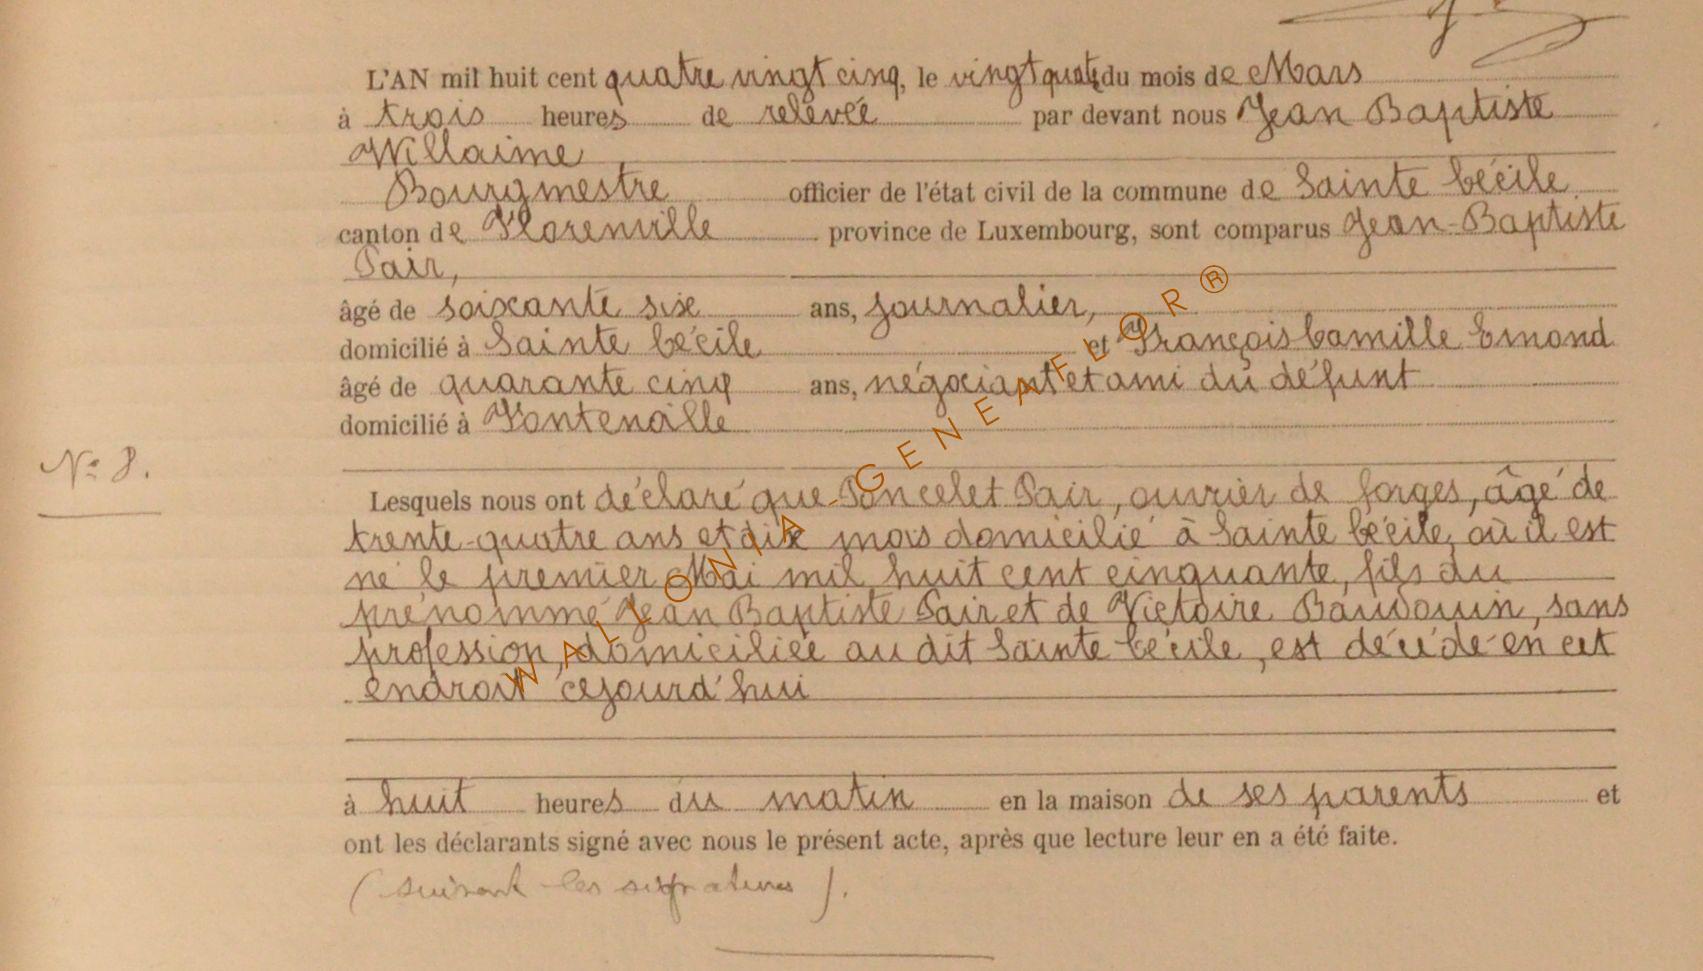 L'AN mil huit cent quatre vingt cinq, le vingt quatre du mois de Mars
à trois heures de relevée par devant nous Jean Baptiste
Willaime,
Bourgmestre officier de l'état civil de la commune de Sainte Cécile
canton de Florenville province de Luxembourg, sont comparus Jean-Baptiste
Pair,
âgé de soixante six ans, journalier,
domicilié à Sainte Cécile et François Camille Emond
âgé de quarante cinq ans, négociant et ami du défunt
domicilié à Fontenoille
N° 8.
Lesquels nous ont déclaré que Poncelet Pair, ouvrier de forges, âgé de
trente-quatre ans et dix mois domicilié à Sainte Cécile, où il est
né le premier Mai mil huit cent cinquante, fils du
prénommé Jean Baptiste Pair et de Victoire Baudouin, sans
profession, domiciliée au dit Sainte Cécile, est décédé en cet
endroit cejourd'hui
à huit heures du matin en la maison de ses parents et
ont les déclarants signé avec nous le présent acte, après que lecture leur en a été faite.
(suivent les signatures).
WALLONIA - GENEAFLOR®